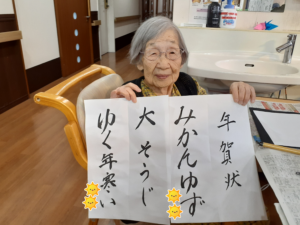 年賀状
みかんゆず
大そうじ
ゆく年寒い